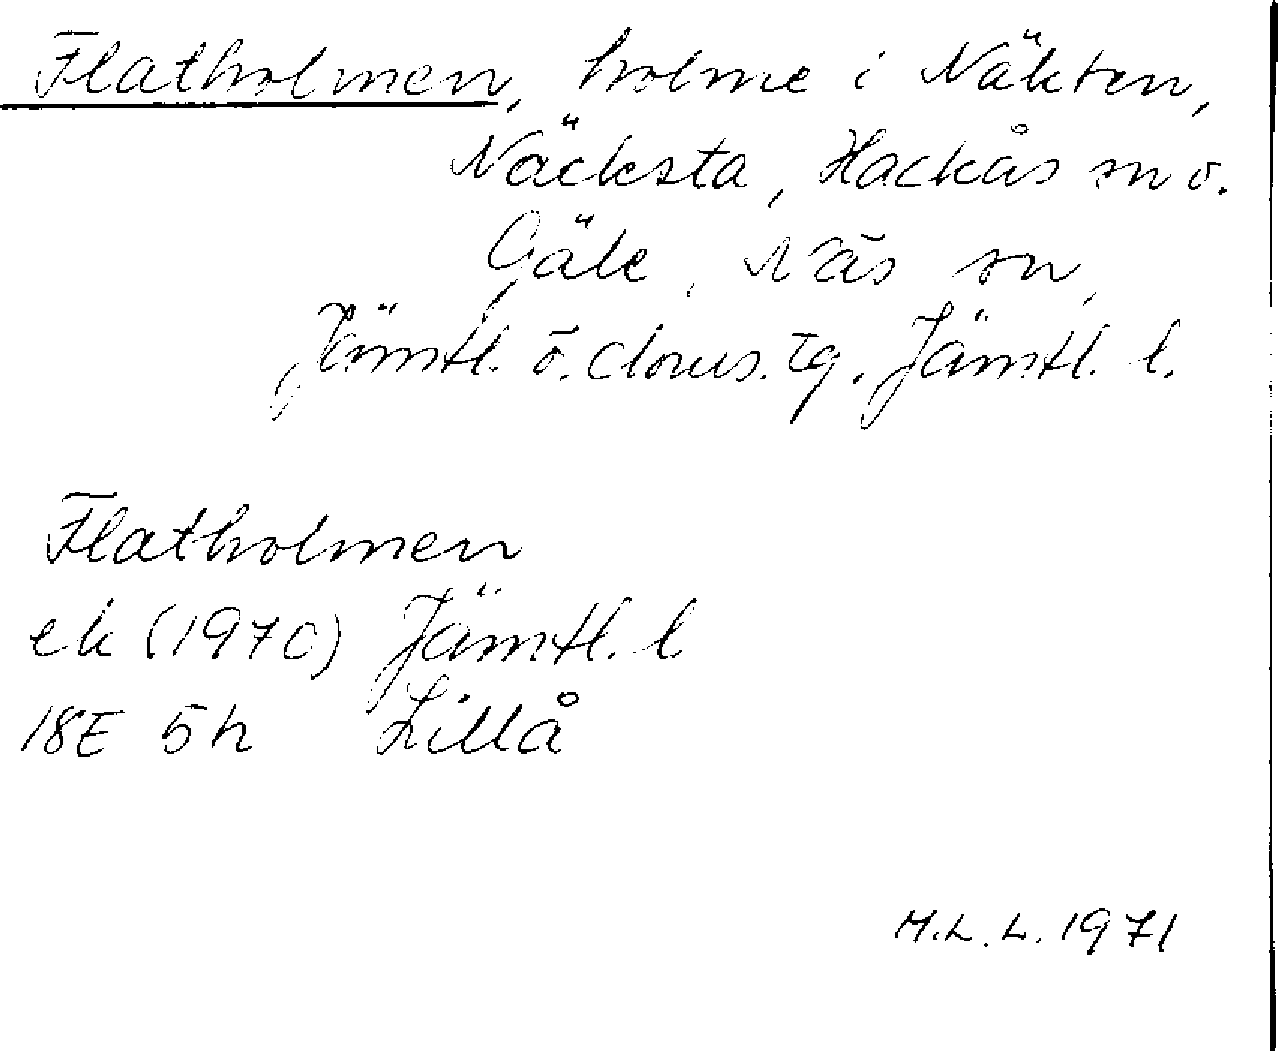 Flatholmen, holme i Näkten,
Näcksta, Hackås sn o.
Gäle, Näs sn,
Jämtl. ö. doms. tg. Jämtl. l.
Flatholmen
ek (1970) Jämtl. l
18E 5h Lillå
M.L.L. 1971